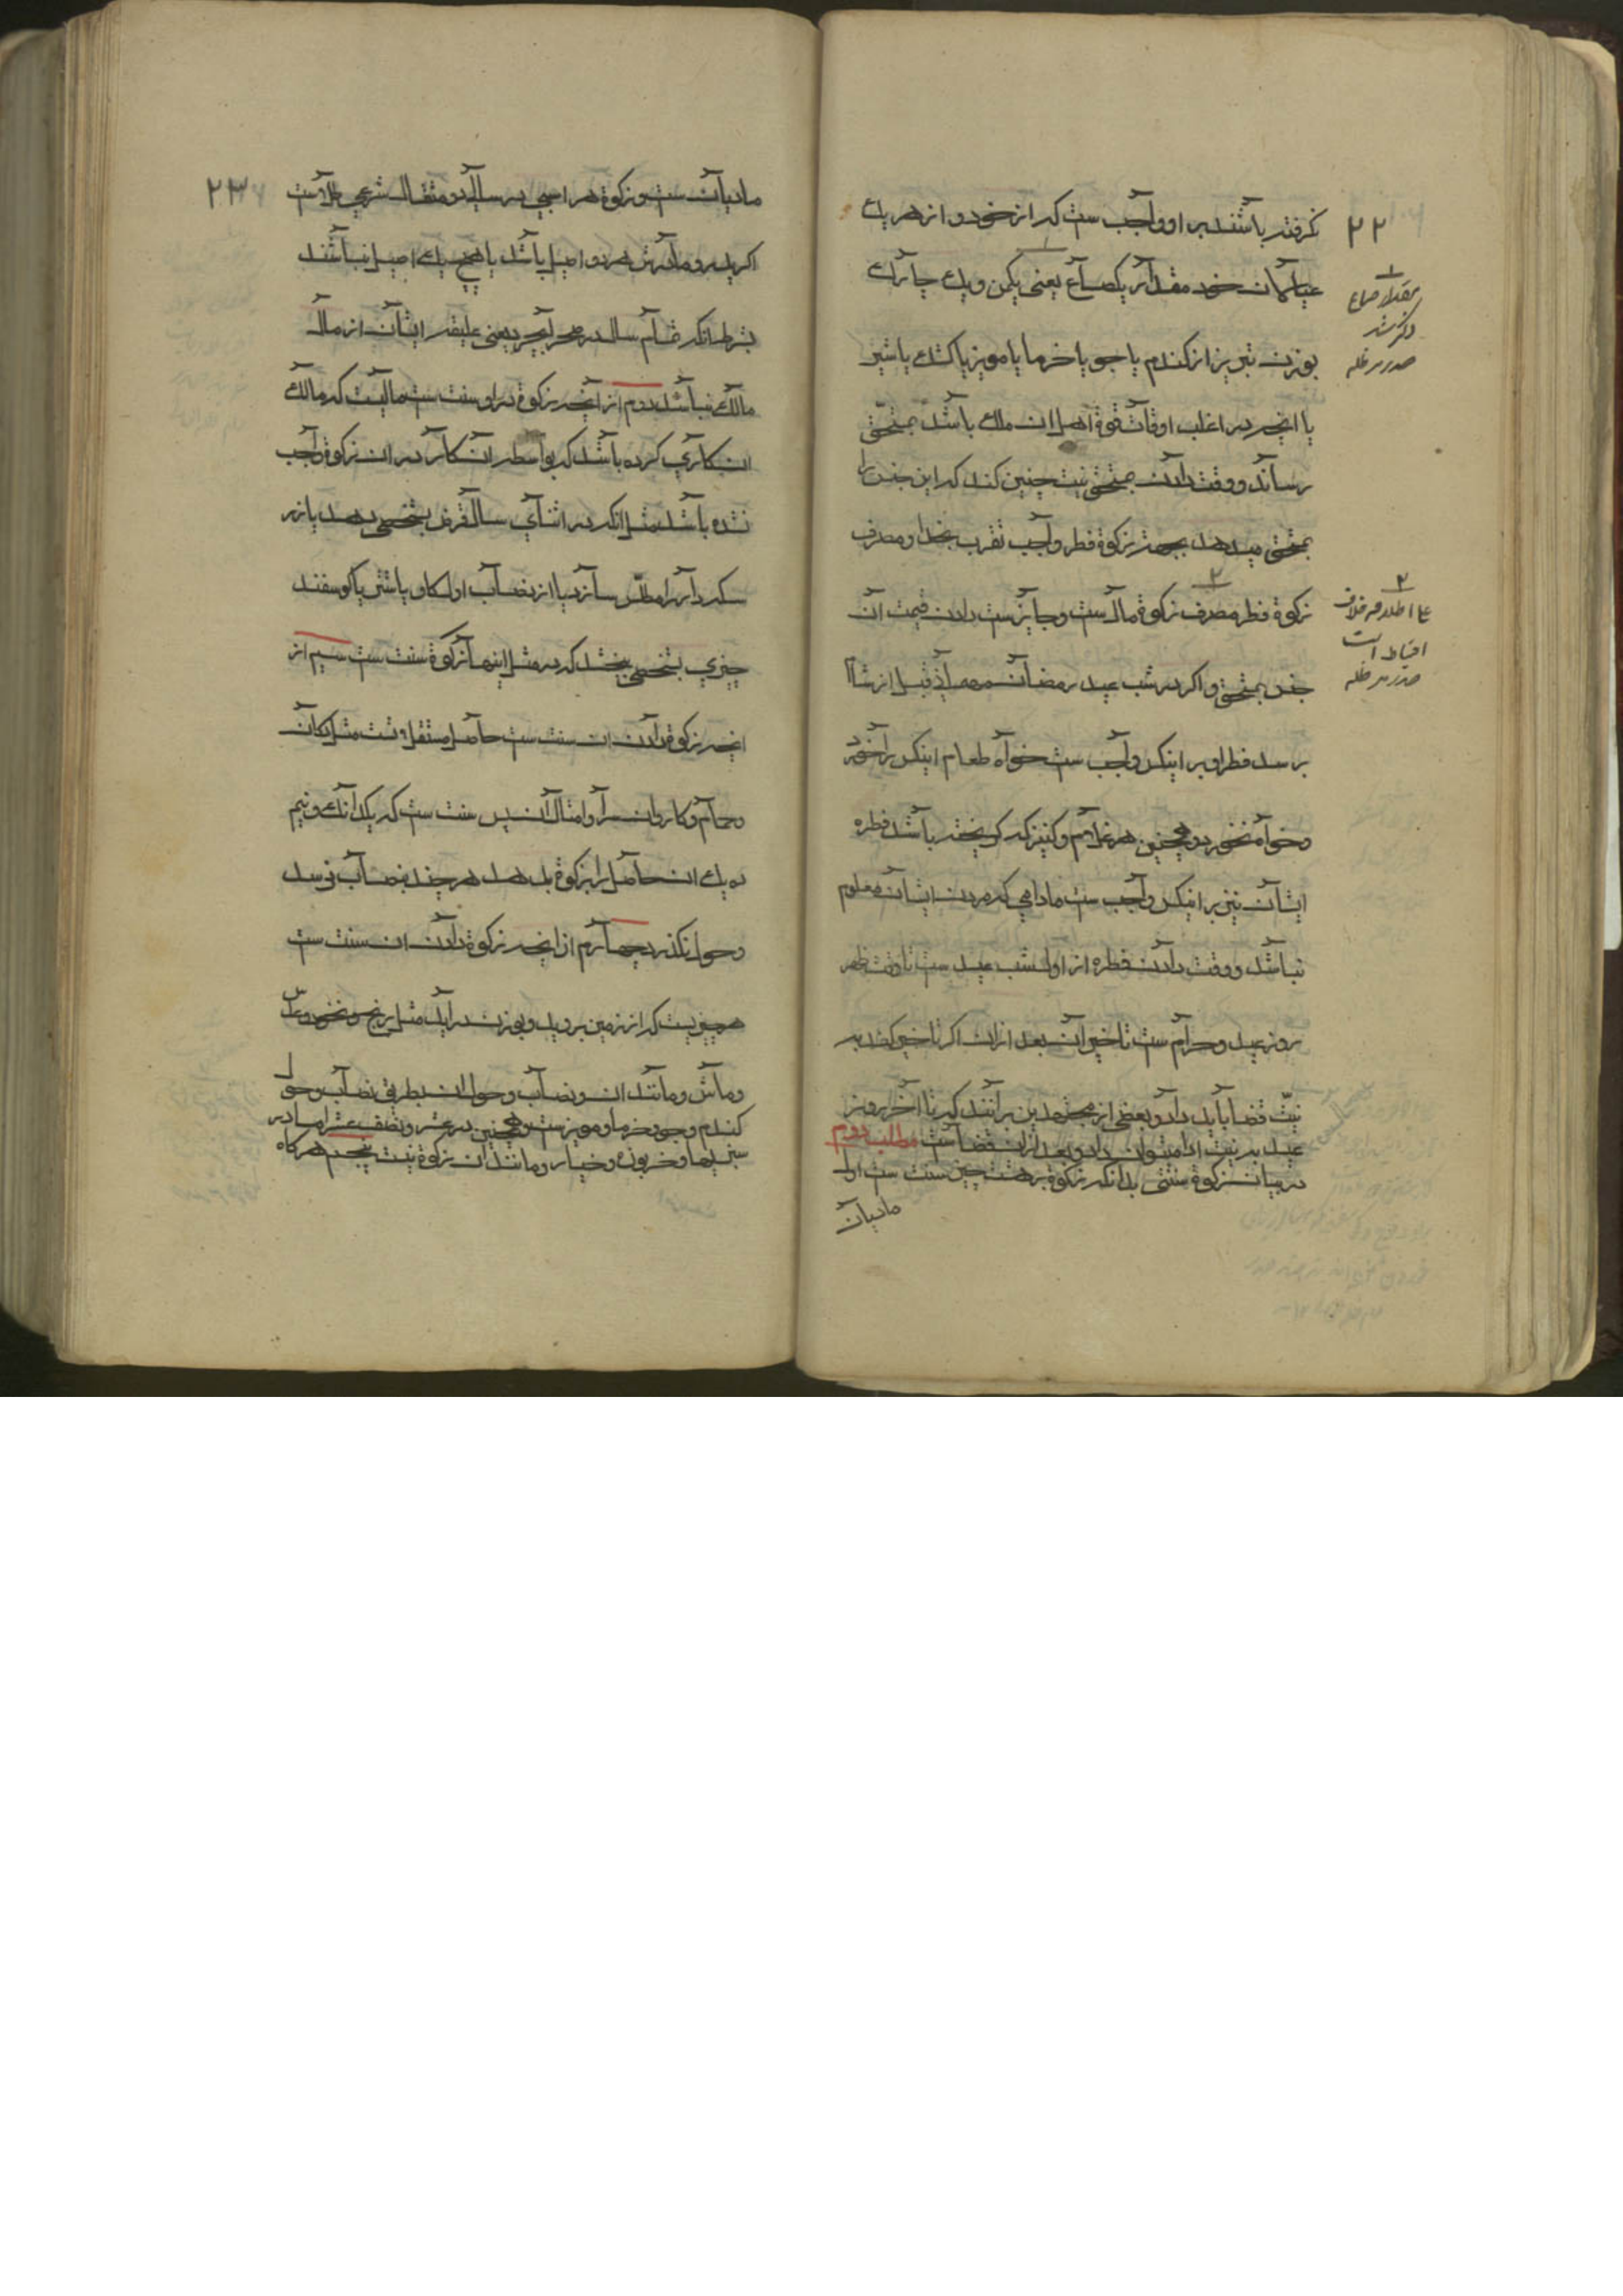 ۲۲
نگرفته باشند بر او واجب ست که از خود و از هر یک
عیالمان خود مقدار یکصاع یعنی یکمن و یک چارک
بوزن تبریز از کندم یا جو یا خرما یا مویز یا کشک یا شیر
یا انچه در اغلب اوقات قوة اهل ان ملک باشد بمستحق
رساند و وقت دادن بمستحق نیت چنین کند که این جنس را
بمستحق میدهد بجهة زکوة فطر واجب تقرب بخدا و مصرف
زکوة فطر مصرف زکوة مال ست و جایز ست دادن قیمت آن
جنس بمستحق و اکر در شب عید رمضان مهمان قبل از شام
برسد فطر او بر اینکس واجب ست خواه طعام اینکس را خورد
و خواه نخورد و همچنین هر غلام و کنیز که کریخته باشد فطره
ایشان نیز بر اینکس واجب ست مادامی که مردن ایشان معلوم
نباشد و وقت دادن فطره از اول شب عید ست تا وقت ظهر
روز عید و حرام ست تاخیر آن بعد از ان اکر تاخیر کند به
نیّت قضا باید داد و بعضی از مجتهدین برآنند که تا آخر روز
عید به نیت ادا میتوان داد و بعد از ان قضاست مطلب دوم
در بیان زکوة سنتی بدانکه زکوة بر هشت چیز سنت ست اول
مادیان
۱
مقدار صاع
ذکر شد
صدر مد ظله
۲
علی اطلاقه خلاف
احتیاط است
صدر مد ظله
۲۳
مادیان ست و زکوة هر اسبی در سالی دو مثقال شرعی طلاست
اکر پدر و مادرش هر دو اصیل باشد یا هیچ یک اصیل نباشند
بشرط انکه تمام سال در صحرا بچرد یعنی علیقه ایشان از مال
مالک نباشد دوم از انچه زکوة در او سنت ست مالیست که مالک
ان کاری کرده باشد که بواسطه ان کار در ان زکوة واجب
نشده باشد مثل انکه در اثنای سال قرض بشخصی دهد یا زر
سکه دار را طلس سازد یا از نصاب اول کاو یا شتر یا کوسفند
چیزی بشخصی ببخشد که در مثل اینها زکوة سنت ست سیم از
انچه زکوة دادن ان سنت ست حاصل مستقلات مثل دکان
و حمام و کاروان سرا و امثال آن پس سنت ست که
ده یک ان حاصل را بزکوة بدهد هر چند بنصاب نرسد
و حول نکذرد چهارم از انچه زکوة دادن ان سنت ست
هر چیزیست که از زمین بروید و بوزن در اید مثل برنج و نخود و عدس
و ماش و مانند ان و نصاب و حول ان بطریق نصاب و حول
کندم و جو و خرما و مویز ست و همچنین در عشر و نصف عشر اما در
سبزیها و خربوزه و خیار و مانند ان زکوة نیست پنجم هر کاه